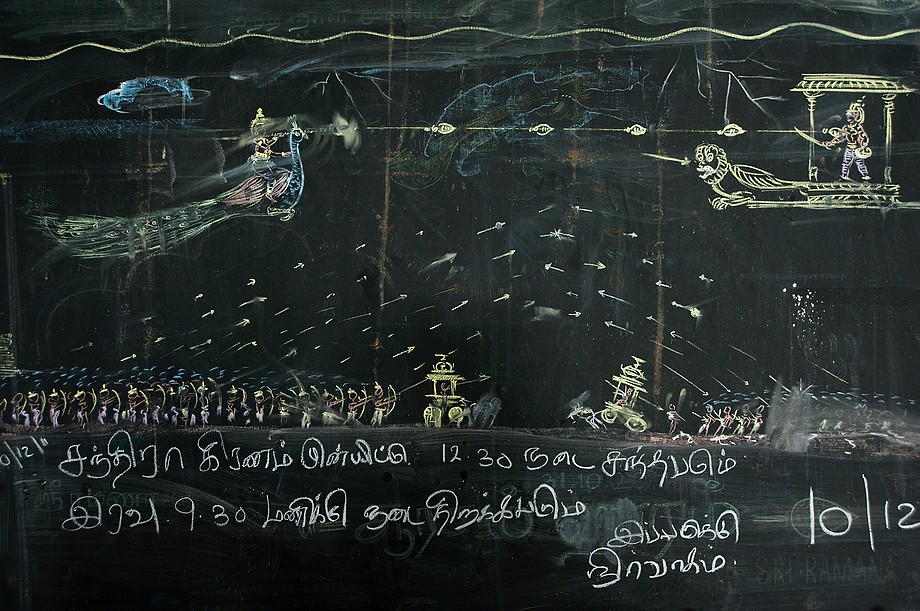 சந்திரா கிரணம் முன்யிட்டு 12.30 நடை சாத்தபடும்.
இரவு 9.30 மணிக்கு நடை திறக்கபடும்
இப்படிக்கு
நிர்வாகம்.
10/12
SRI RAMANA